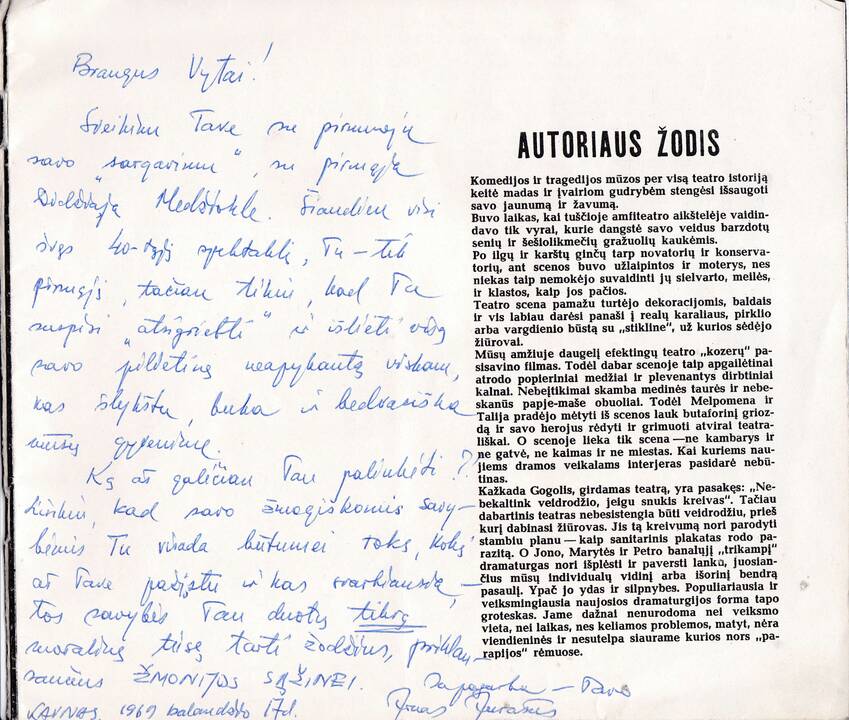 Brangus Vytai!
Sveikinu Tave su pirmuoju
savo „sargavimu“, su pirmąja
Didžiąja Medžiokle. Šiandien visi
švęs 40-tąjį spektaklį, Tu – tik
pirmąjį, tačiau tikiu, kad Tu
suspėsi „atsigriebti“ ir išlieti visą
savo pilietinę neapykantą viskam,
kas šlykštu, buka ir bedvasiška
mūsų gyvenime.
Ką aš galėčiau Tau palinkėti?
Linkiu, kad savo žmogiškomis savy-
bėmis Tu visada būtumei toks, kokį
aš Tave pažįstu ir kas svarbiausia,
tos savybės Tau duotų tikrą
moralinę teisę tarti žodžius, priklau-
sančius ŽMONIJOS SĄŽINEI.
Su pagarba – Tavo
Jonas Jurašas
KAUNAS, 1969 balandžio 17 d.
AUTORIAUS ŽODIS
Komedijos ir tragedijos mūzos per visą teatro istoriją
keitė madas ir įvairiom gudrybėm stengėsi išsaugoti
savo jaunumą ir žavumą.
Buvo laikas, kai tuščioje amfiteatro aikštelėje vaidin-
davo tik vyrai, kurie dangstė savo veidus barzdotų
senių ir šešiolikmečių gražuolių kaukėmis.
Po ilgų ir karštų ginčų tarp novatorių ir konserva-
torių, ant scenos buvo užlaipintos ir moterys, nes
niekas taip nemokėjo suvaidinti jų sielvarto, meilės,
ir klastos, kaip jos pačios.
Teatro scena pamažu turtėjo dekoracijomis, baldais
ir vis labiau darėsi panaši į realų karaliaus, pirklio
arba vargdienio būstą su „stikline“, už kurios sėdėjo
žiūrovai.
Mūsų amžiuje daugelį efektingų teatro „kozerų“ pa-
sisavino filmas. Todėl dabar scenoje taip apgailėtinai
atrodo popieriniai medžiai ir plevenantys dirbtiniai
kalnai. Nebeįtikimai skamba medinės taurės ir nebe-
skanūs papje-maše obuoliai. Todėl Melpomena ir
Talija pradėjo mėtyti iš scenos lauk butaforinį grioz-
dą ir savo herojus rėdyti ir grimuoti atvirai teatra-
liškai. O scenoje lieka tik scena — ne kambarys ir
ne gatvė, ne kaimas ir ne miestas. Kai kuriems nau-
jiems dramos veikalams interjeras pasidarė nebū-
tinas.
Kažkada Gogolis, girdamas teatrą, yra pasakęs: „Ne-
bekaltink veidrodžio, jeigu snukis kreivas“. Tačiau
dabartinis teatras nebesistengia būti veidrodžiu, prieš
kurį dabinasi žiūrovas. Jis tą kreivumą nori parodyti
stambiu planu — kaip sanitarinis plakatas rodo pa-
razitą. O Jono, Marytės ir Petro banalųjį „trikampį“
dramaturgas nori išplėsti ir paversti lanku, juosian-
čius mūsų individualų vidinį arba išorinį bendrą
pasaulį. Ypač jo ydas ir silpnybes. Populiariausia ir
veiksmingiausia naujosios dramaturgijos forma tapo
groteskas. Jame dažnai nenurodoma nei veiksmo
vieta, nei laikas, nes keliamos problemos, matyt, nėra
viendieninės ir nesutelpa siaurame kurios nors „pa-
rapijos“ rėmuose.